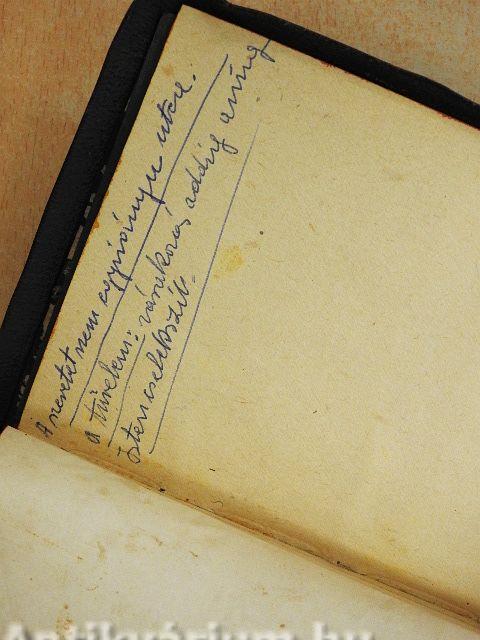 A szeretet nem egyirányu utca.
A türelem: várakozás addig amíg
Isten cselekszik.
Antikvárium.hu